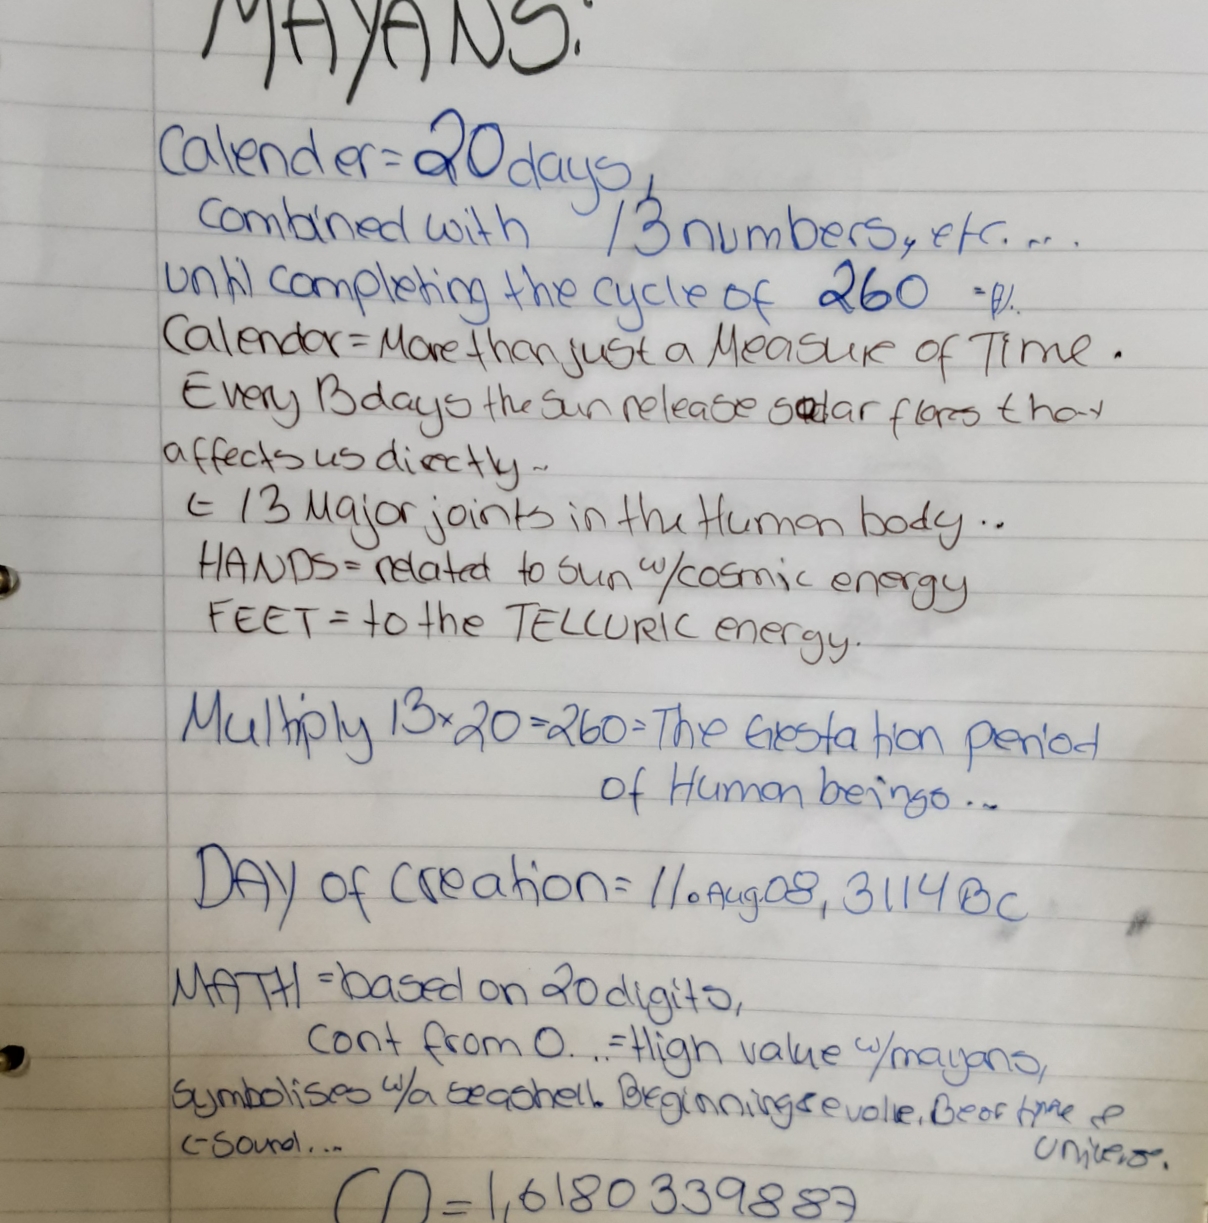 MAYANS:
Calender = 20 days,
combined with 13 numbers, etc....
until completing the cycle of 260
Calendar = More than just a Measure of Time.
Every 13 days the sun release solar flares that
affects us directly~
13 Major joints in the Human body..
HANDS = related to sun w/cosmic energy
FEET = to the TELLURIC energy.
Multiply 13 x 20 = 260 = The Gestation period
of Human beings...
DAY of creation = 11. Aug 08, 3114 BC
MATH = based on 20 digits,
Cont from 0... = High value w/mayans,
symbolises w/a seashell. Beginning & evolve. Be of time &
Sound.... Univers.
= 1,6180339887